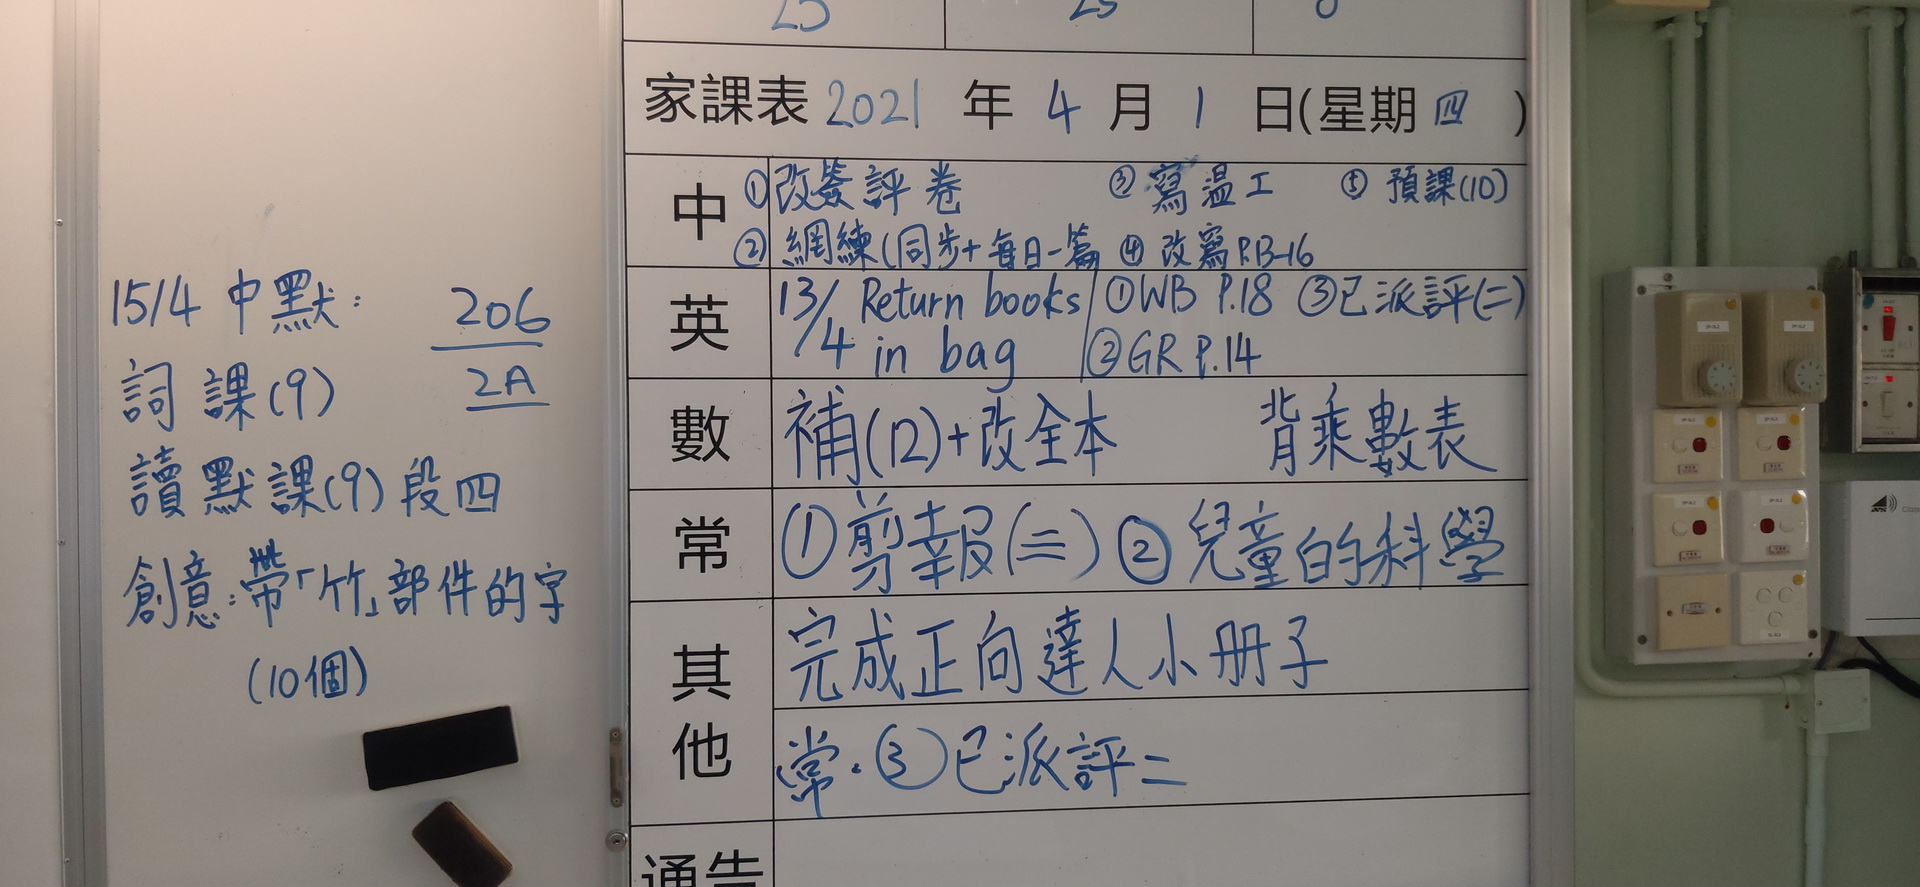 15/4 中默:
206
詞 課(9)
2A
讀默課(9)段四
創意:帶「竹」部件的字
(10個)
家課表 2021 年 4 月 1 日(星期 四 )
中
①改簽評卷 ③寫温工 ⑤預課(10)
②網練(同步+每日一篇 ④改寫P.13-16
英
13/4 Return books in bag
①WB P.18 ③已派評(二)
②GR P.14
數
補(12)+改全本 背乘數表
常
①剪報(二) ②兒童的科學
其他
完成正向達人小冊子
常.③已派評二
通告